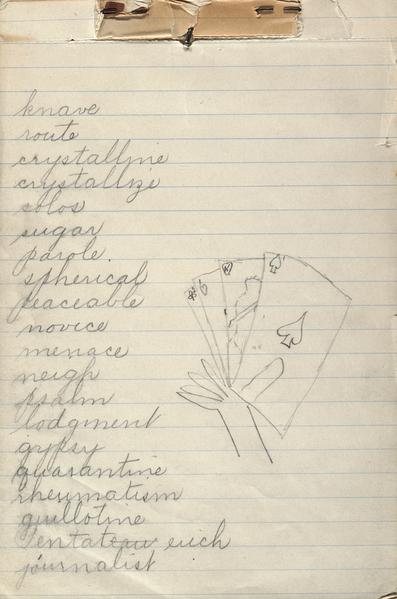 knave
route
crystalline
crystallize
solos
sugar
parole.
spherical
peaceable
novice
menace
neigh
psalm
lodgment
gypsy
quarantine
rheumatism
guillotine
journalist